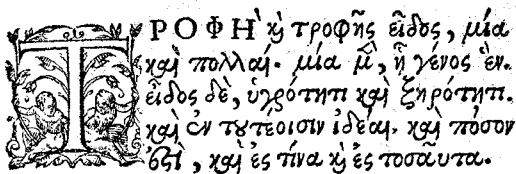 ΤΡΟΦΗ καὶ τροφῆς εἶδος, μία
καὶ πολλαί. μία μὲν, ᾗ γένος ἕν.
εἶδος δὲ, ὑγρότητι καὶ ξηρότητι.
καὶ ἐν τουτέοισιν ἰδέαι. καὶ πόσον
ἐστὶ, καὶ ἐς τίνα καὶ ἐς τοσαῦτα.